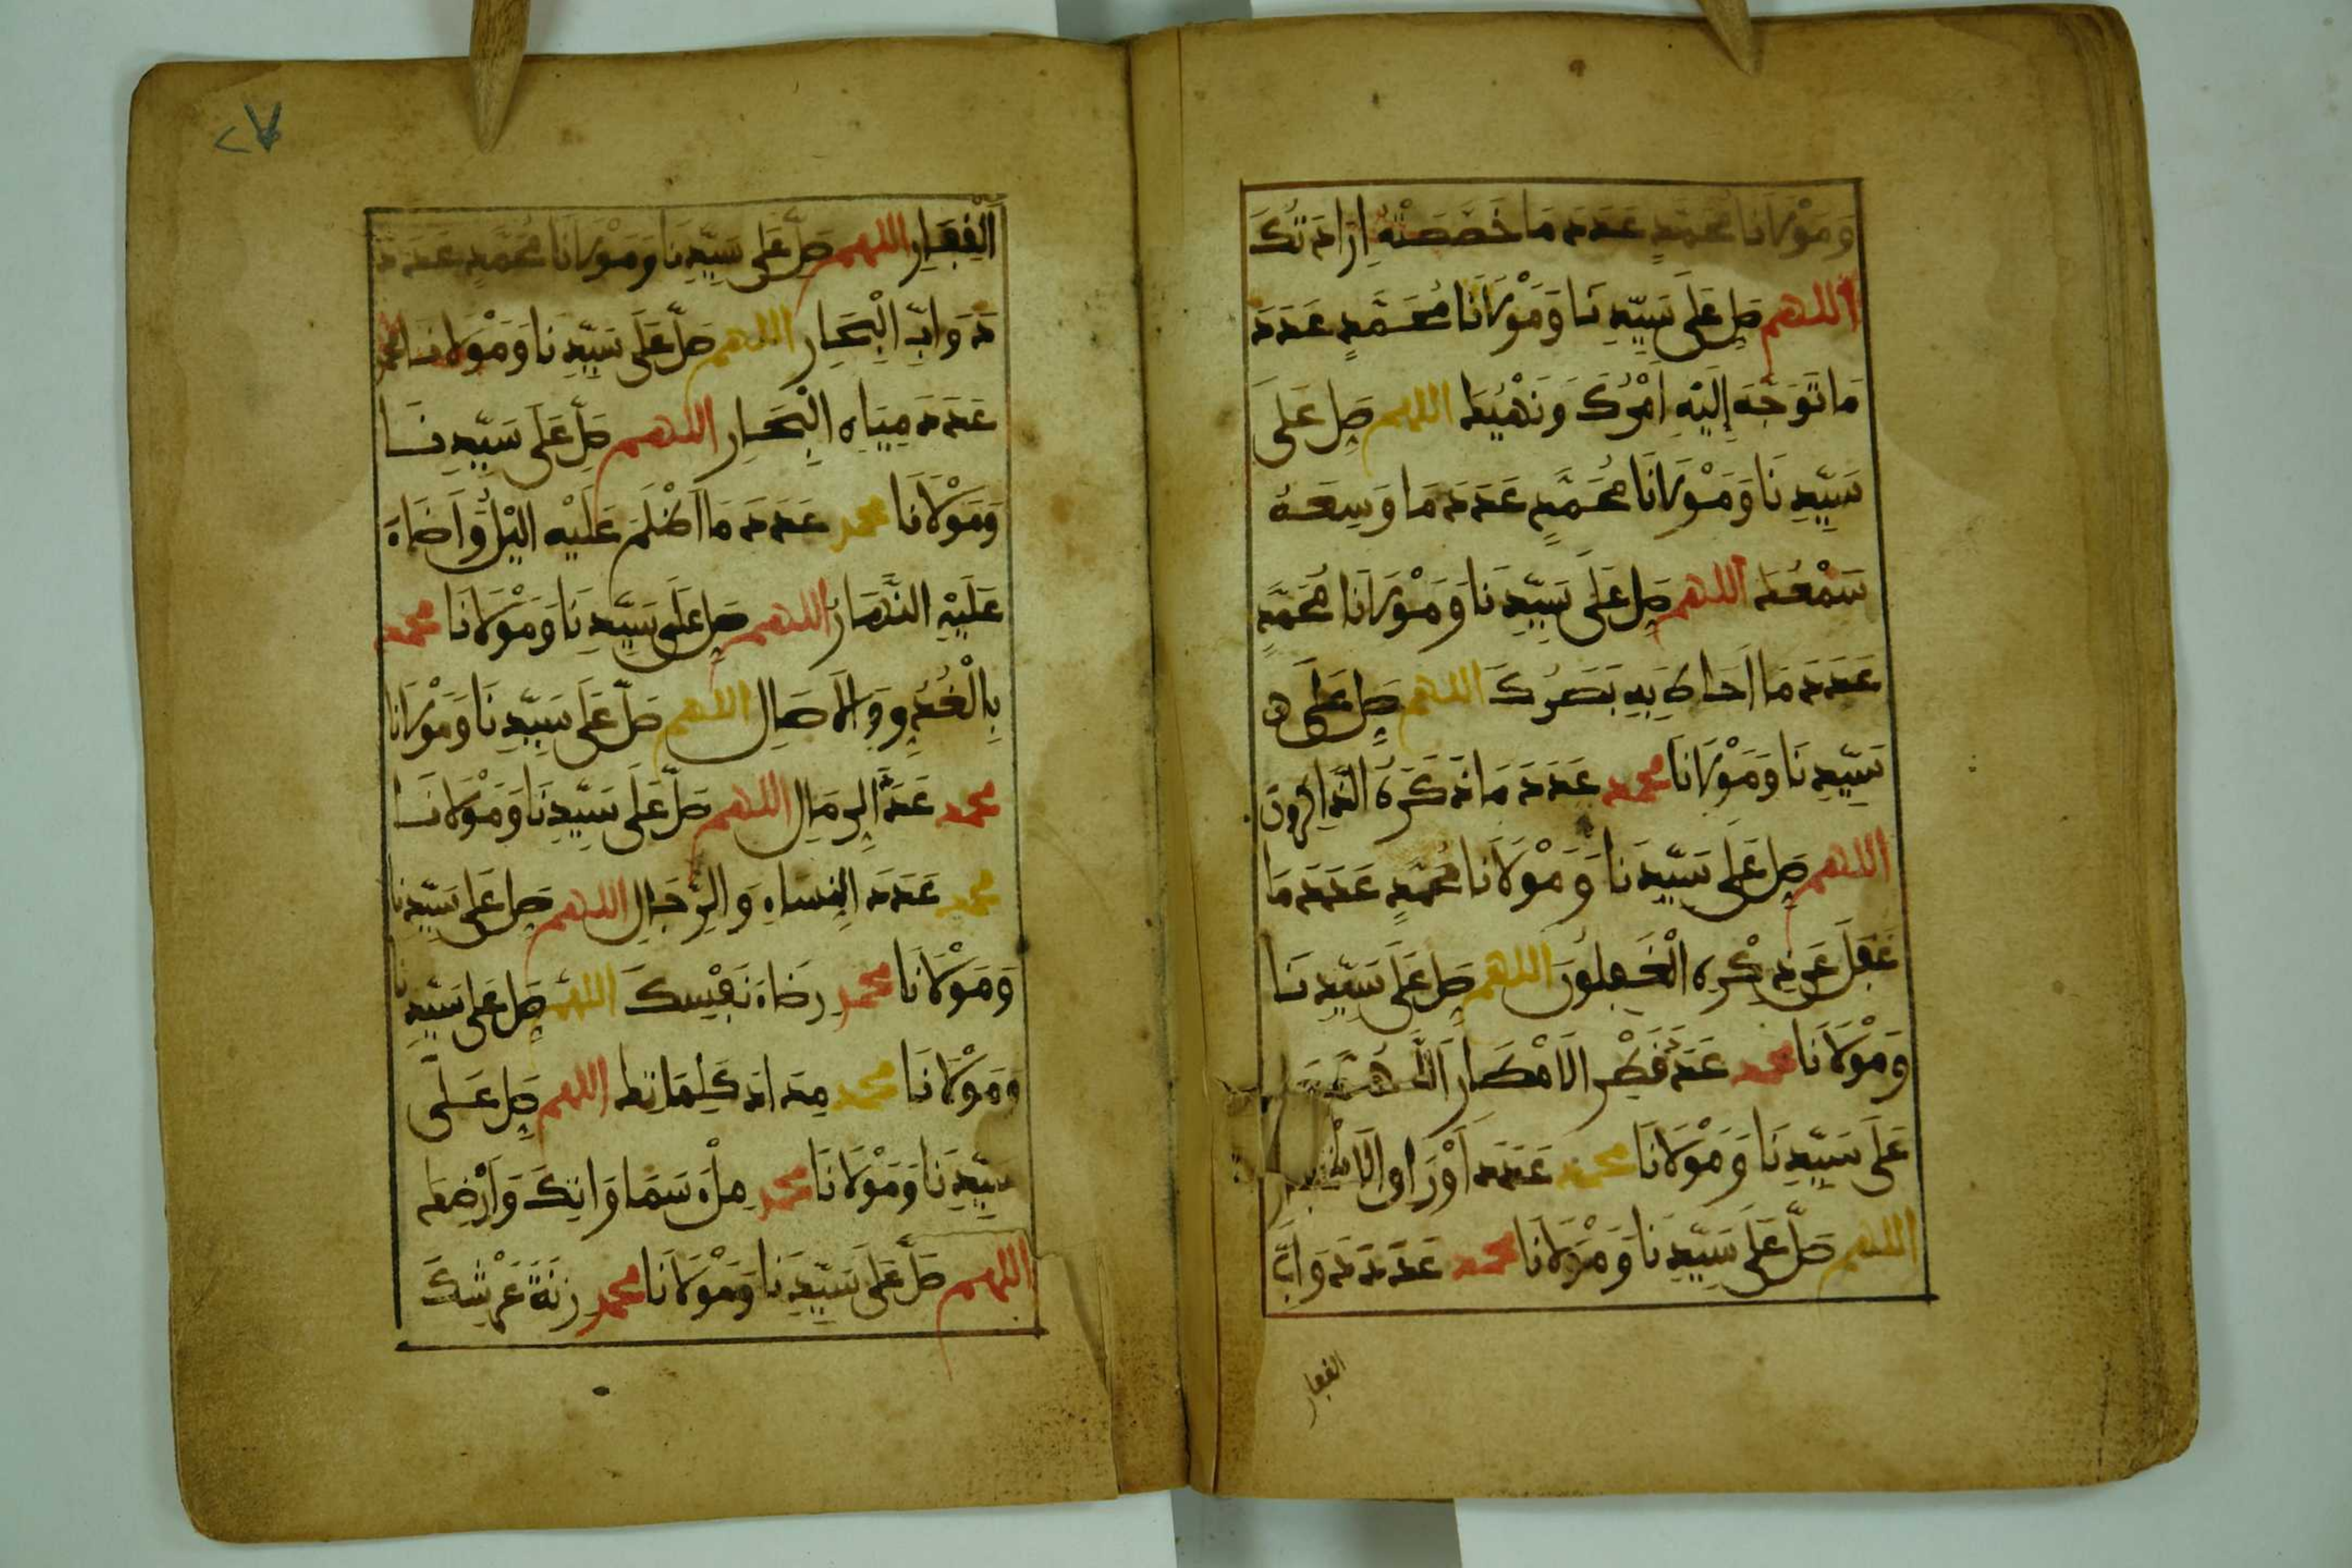 وَمَوْلَانَا مُحَمَّدٍ عَدَدَ مَا خَصَّصَتْهُ إِرَادَتُكَ
اللهم صَلِّ عَلَى سَيِّدِنَا وَمَوْلَانَا مُحَمَّدٍ عَدَدَ
مَا تَوَجَّهَ إِلَيْهِ أَمْرُكَ وَنَهْيُكَ اللهم صَلِّ عَلَى
سَيِّدِنَا وَمَوْلَانَا مُحَمَّدٍ عَدَدَ مَا وَسِعَهُ
سَمْعُكَ اللهم صَلِّ عَلَى سَيِّدِنَا وَمَوْلَانَا مُحَمَّدٍ
عَدَدَ مَا أَحَاطَ بِهِ بَصَرُكَ اللهم صَلِّ عَلَى
سَيِّدِنَا وَمَوْلَانَا محمد عَدَدَ مَا ذَكَرَهُ الذَّاكِرُونَ
اللهم صَلِّ عَلَى سَيِّدِنَا وَمَوْلَانَا مُحَمَّدٍ عَدَدَ مَا
غَفَلَ عَن ذِكْرِهِ الْغَافِلُونَ اللهم صَلِّ عَلَى سَيِّدِنَا
وَمَوْلَانَا محمد عَدَدَ قَطْرِ الَامْطَارِ
عَلَى سَيِّدِنَا وَمَوْلَانَا محمد عَدَدَ أَوْرَاقِ
اللهم صَلِّ عَلَى سَيِّدِنَا وَمَوْلَانَا محمد عَدَدَ دَوَابِّ
القفار
الْقِفَارِ اللهم صَلِّ عَلَى سَيِّدِنَا وَمَوْلَانَا مُحَمَّدٍ عَدَدَ
دَوَابِّ الْبِحَارِ اللهم صَلِّ عَلَى سَيِّدِنَا وَمَوْلَانَا محمد
عَدَدَ مِيَاهِ الْبِحَارِ اللهم صَلِّ عَلَى سَيِّدِنَا
وَمَوْلَانَا محمد عَدَدَ مَا أَظْلَمَ عَلَيْهِ الَّيْلُ وَأَضَاءَ
عَلَيْهِ النَّهَارُ اللهم صَلِّ عَلَى سَيِّدِنَا وَمَوْلَانَا محمد
بِالْغُدُوِّ وَالَاصَالِ اللهم صَلِّ عَلَى سَيِّدِنَا وَمَوْلَانَا
محمد عَدَدَ الرِّمَالِ اللهم صَلِّ عَلَى سَيِّدِنَا وَمَوْلَانَا
محمد عَدَدَ النِّسَاءِ وَالرِّجَالِ اللهم صَلِّ عَلَى سَيِّدِنَا
وَمَوْلَانَا محمد رِضَاءَ نَفْسِكَ اللهم صَلِّ عَلَى سَيِّدِنَا
وَمَوْلَانَا محمد مِدَادَ كَلِمَاتِكَ اللهم صَلِّ عَلَى
سَيِّدِنَا وَمَوْلَانَا محمد مِلْءَ سَمَاوَاتِكَ وَأَرْضِكَ
اللهم صَلِّ عَلَى سَيِّدِنَا وَمَوْلَانَا محمد زِنَةَ عَرْشِكَ